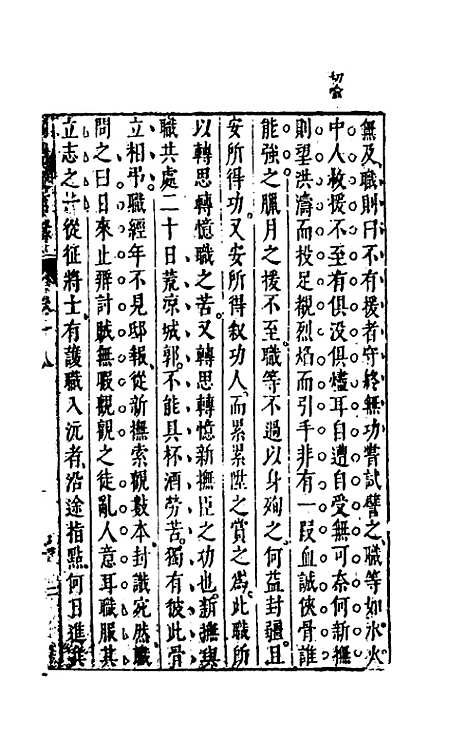 切喻
無及職則曰不有援者守終無功嘗試譬之職等如水火
中人救援不至有俱没俱燼耳自遭自受無可奈何新撫
則望洪濤而投足覩烈焰而引手非有一段血誠俠骨誰
能強之臘月之援不至職等不過以身殉之何益封疆且
安所得功又安所得叙功人而累累陞之賞之爲此職所
以轉思轉憶職之苦又轉思轉憶新撫臣之功也新撫與
職共處二十日荒凉城郭不能具杯酒勞苦獨有彼此骨
立相弔職經年不見邸報從新撫索觀數本封識宛然職
問之曰日來止辦討賊無暇觀觀之徒亂人意耳職服其
立志之 從征將士有護職入沅者沿途指點何日進兵